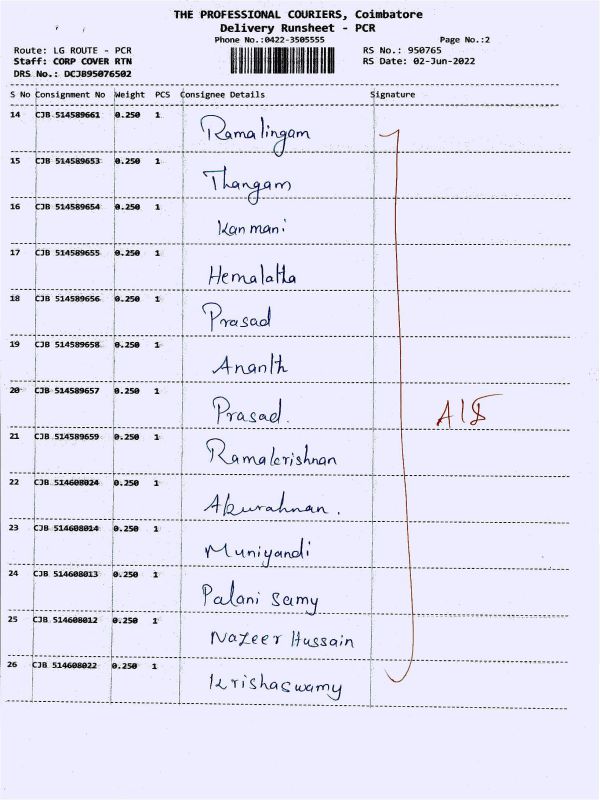 THE PROFESSIONAL COURIERS, Coimbatore
Delivery Runsheet - PCR
Phone No.:0422-3505555
Page No.:2
Route: LG ROUTE - PCR
RS No.: 950765
Staff: CORP COVER RTN
RS Date: 02-Jun-2022
DRS No.: DCJB95076502
S No Consignment No Weight PCS Consignee Details Signature
14 CJB 514589661 0.250 1 Ramalingam
15 CJB 514589653 0.250 1 Thangam
16 CJB 514589654 0.250 1 Kanmani
17 CJB 514589655 0.250 1 Hemalatha
18 CJB 514589656 0.250 1 Prasad
19 CJB 514589658 0.250 1 Ananth
20 CJB 514589657 0.250 1 Prasad.
21 CJB 514589659 0.250 1 Ramakrishnan
22 CJB 514608024 0.250 1 Akurahnan.
23 CJB 514608014 0.250 1 Muniyandi
24 CJB 514608013 0.250 1 Palani Samy
25 CJB 514608012 0.250 1 Nazeer Hussain
26 CJB 514608022 0.250 1 Krishaswamy